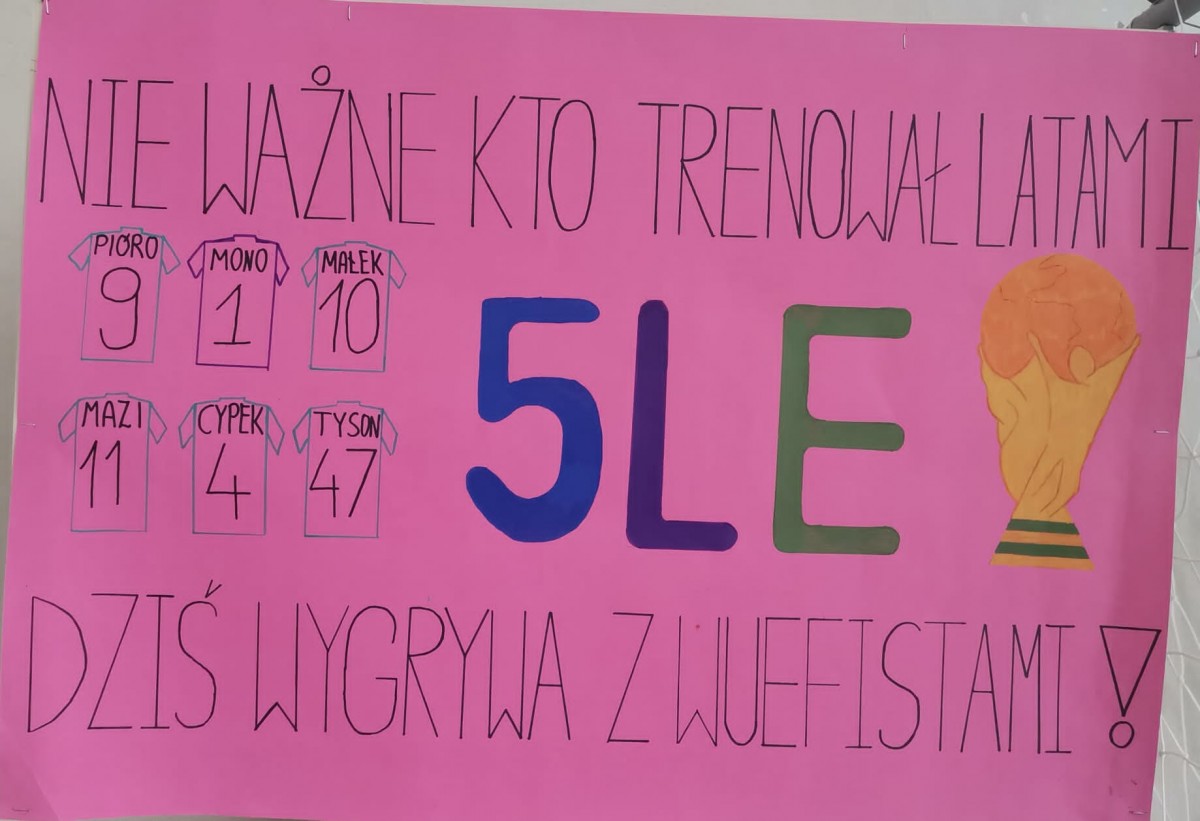 NIE WAŻNE KTO TRENOWAŁ LATAMI
PIÓRO MONO MAŁEK
9 1 10
MAZI CYPEK TYSON
11 4 47
5LE
DZIŚ WYGRYWA Z WUEFISTAMI!